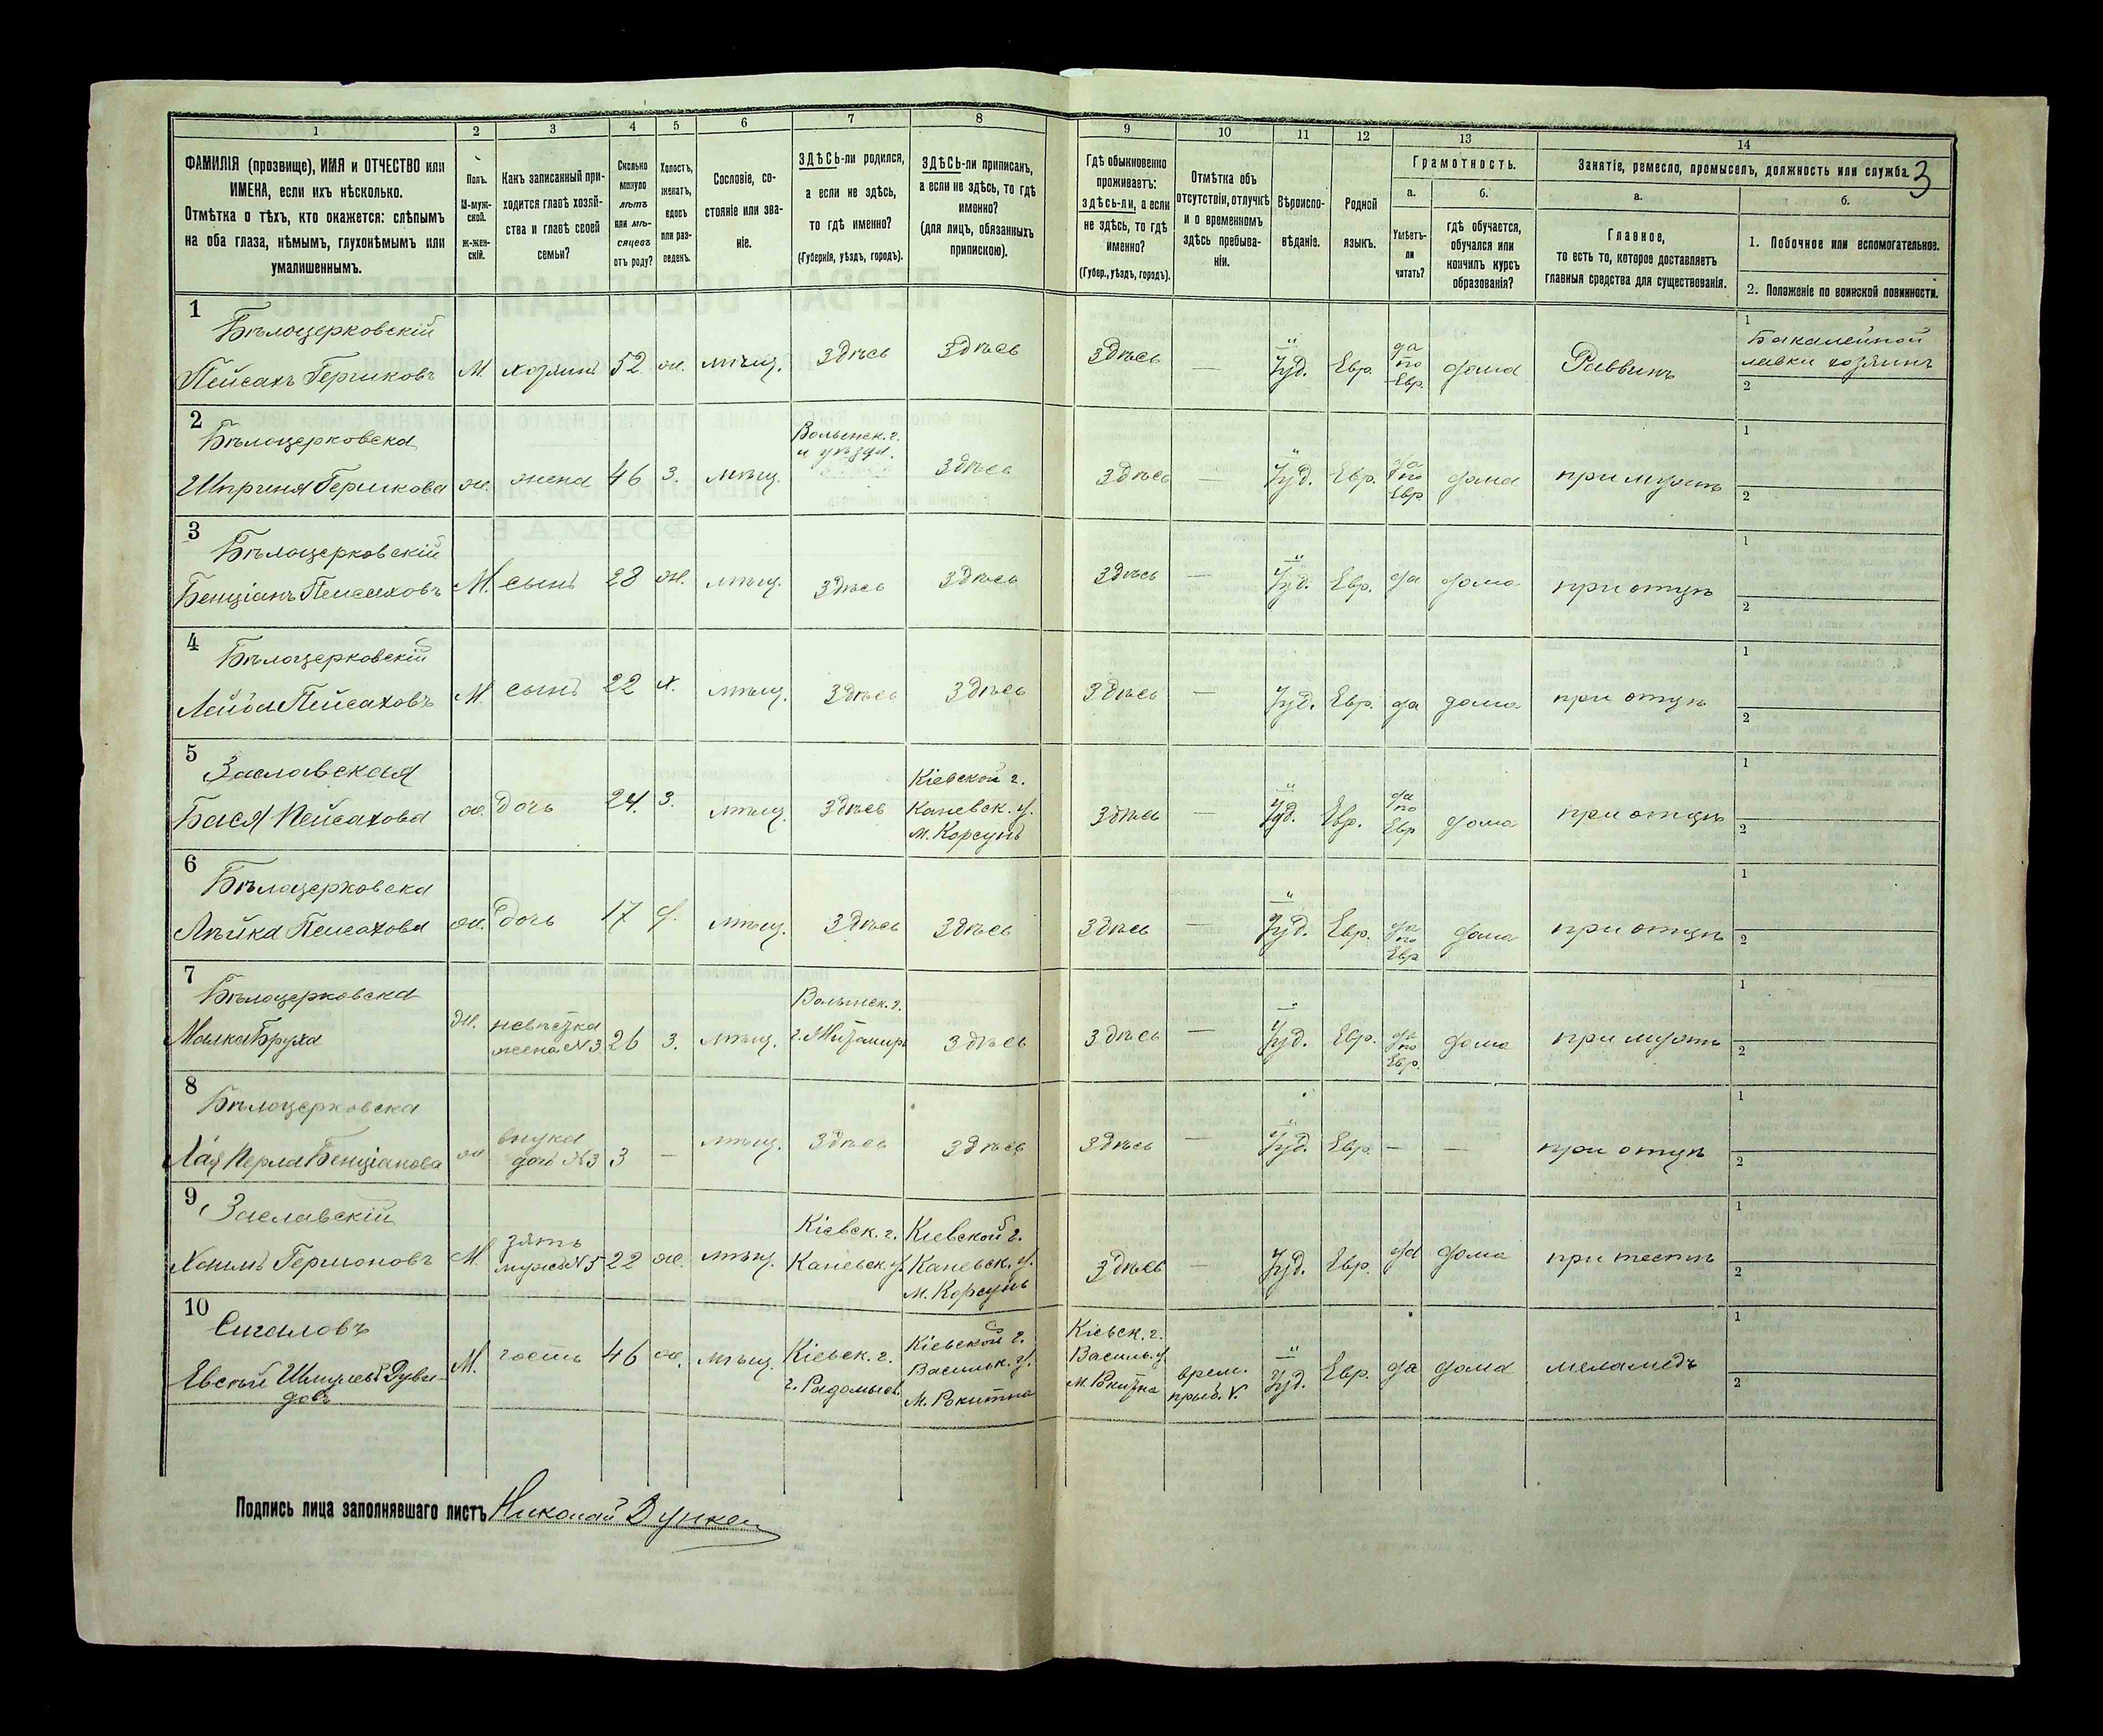 1 2 3 4 5 6 7 8 9 10 11 12 13 14
3
ФАМИЛІЯ (прозвище), ИМЯ и ОТЧЕСТВО или
ИМЕНА, если ихъ нѣсколько.
Отмѣтка о тѣхъ, кто окажется: слѣпымъ
на оба глаза, нѣмымъ, глухонѣмымъ или
умалишеннымъ.
Полъ.
М-муж-
ской.
Ж-жен-
скій.
Какъ записанный при-
ходится главѣ хозяй-
ства и главѣ своей
семьи?
Сколько
минуло
лѣтъ
или мѣ-
сяцевъ
отъ роду?
Холостъ,
женатъ,
вдовъ
или раз-
веденъ.
Сословіе, со-
стояніе или зва-
ніе.
ЗДѢСЬ-ли родился,
а если не здѣсь,
то гдѣ именно?
(Губернія, уѣздъ, городъ).
ЗДѢСЬ-ли приписанъ,
а если не здѣсь, то гдѣ
именно?
(для лицъ, обязанныхъ
припискою).
Гдѣ обыкновенно
проживаетъ:
здѣсь-ли, а если
не здѣсь, то гдѣ
именно?
(Губер., уѣздъ, городъ).
Отмѣтка объ
отсутствіи, отлучкѣ
и о временномъ
здѣсь пребыва-
ніи.
Вѣроиспо-
вѣданіе.
Родной
языкъ.
Грамотность.
а.
Умѣетъ-
ли
читать?
б.
гдѣ обучается,
обучался или
кончилъ курсъ
образованія?
Занятіе, ремесло, промыселъ, должность или служба.
а.
Главное,
то есть то, которое доставляетъ
главныя средства для существованія.
б.
1. Побочное или вспомогательное.
2. Положеніе по воинской повинности.
1
Бѣлоцерковскій
Пейсахъ Гершковъ М. хозяинъ 52 ж. мѣщ. Здѣсь Здѣсь Здѣсь — Іуд. Евр. да по Евр. дома Раввинъ
1 Бакалейной
лавки хозяинъ
2
2
Бѣлоцерковска
Шприня Гершкова ж. жена 46 з. мѣщ.
Волынск. г.
и уѣзда.
Здѣсь Здѣсь — Іуд. Евр. да по Евр дома при мужѣ
1
2
3
Бѣлоцерковскій
Бенціанъ Пейсаховъ М. сынъ 28 ж. мѣщ. Здѣсь Здѣсь Здѣсь — Іуд. Евр. да дома при отцѣ
1
2
4
Бѣлоцерковскій
Лейба Пейсаховъ М. сынъ 22 х. мѣщ. Здѣсь Здѣсь Здѣсь — Іуд. Евр. да дома при отцѣ
1
2
5
Заславская
Бася Пейсахова ж. дочь 24. з. мѣщ. Здѣсь
Кіевской г.
Каневск. у.
м. Корсунь
Здѣсь — Іуд. Евр. да по Евр дома при отцѣ
1
2
6
Бѣлоцерковска
Лейка Пейсахова ж. дочь 17 д. мѣщ. Здѣсь Здѣсь Здѣсь — Іуд. Евр. да по Евр дома при отцѣ
1
2
7
Бѣлоцерковска
Малка Бруха ж.
невѣстка
жена №3
26 з. мѣщ.
Волынск. г.
г. Житомиръ
Здѣсь Здѣсь — Іуд. Евр. да по Евр. дома при мужѣ
1
2
8
Бѣлоцерковска
Хая Перла Бенціанова ж
внука
дочь №3
3 — мѣщ. Здѣсь Здѣсь Здѣсь — Іуд. Евр. — — при отцѣ
1
2
9
Заславскій
Хаимъ Гершоновъ М.
зять
мужъ №5
22 ж. мѣщ.
Кіевск. г.
Каневск. у.
Кіевской г.
Каневск. у.
м. Корсунь
Здѣсь — Іуд. Евр. да дома при тестѣ
1
2
10
Сигаловъ
Евсѣй Шмулевъ Дуви-
довъ
М. гость 46 ж. мѣщ.
Кіевск. г.
г. Радомысл.
Кіевской г.
Васильк. у.
м. Рокитна
Кіевск. г.
Василь. у
м. Рокитна
врем.
приб. V.
Іуд. Евр. да дома меламедъ
1
2
Подпись лица заполнявшаго листъ Николай